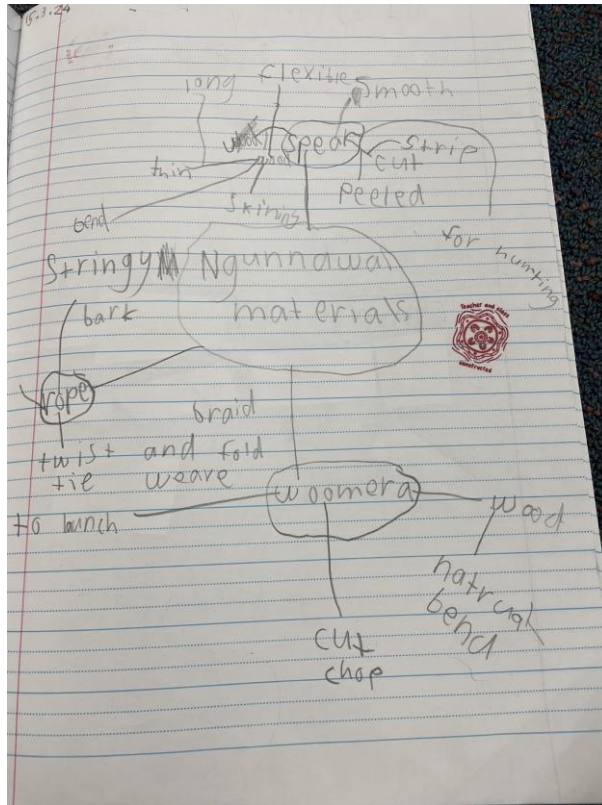 15.3.24
long
flexitie
Smooth
spear
wood
strip
cut
peeled
thin
skining
bend
for hunting
Stringy
Ngunnawal
materials
bark
Teacher and class
constructed
rope
braid
twist and fold
tie weave
woomera
wood
to launch
natrual
bend
cut
chop